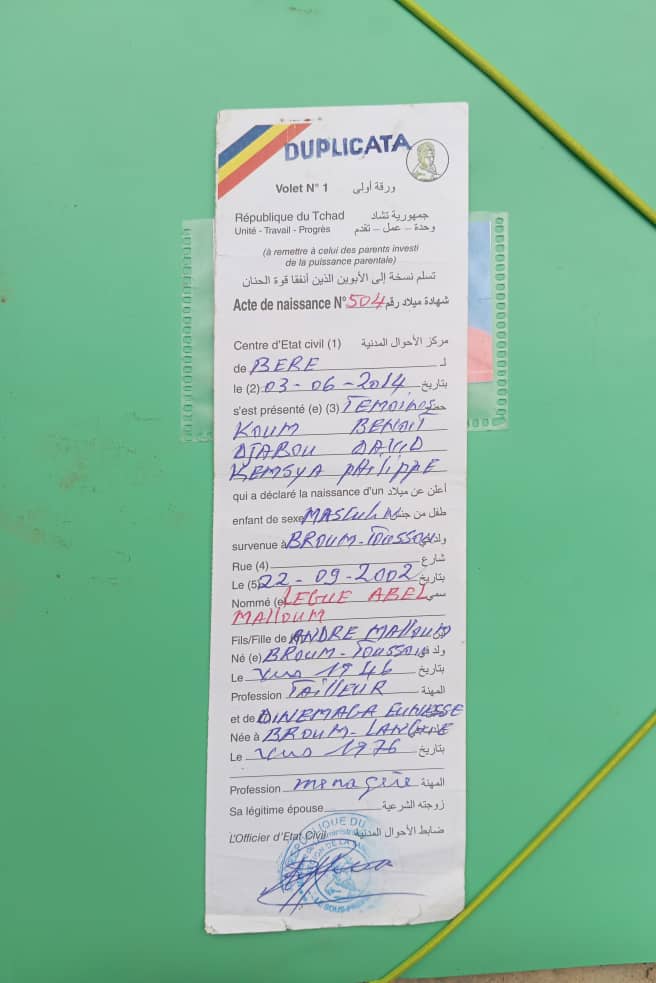 DUPLICATA
Volet N° 1 ورقة أولى
République du Tchad جمهورية تشاد
Unité - Travail - Progrès وحدة – عمل – تقدم
(à remettre à celui des parents investi
de la puissance parentale)
تسلم نسخة إلى الأبوين الذين أنفقا قوة الحنان
Acte de naissance N° 504 شهادة ميلاد رقم
Centre d'Etat civil (1) مركز الأحوال المدنية
de BERE لـ
le (2) 03-06-2014 بتاريخ
s'est présenté (e) (3) TEMOINS
KOUM BENOIT
DJABOU DAVID
KEMSYA PHILIPPE
qui a déclaré la naissance d'un أعلن عن ميلاد
enfant de sexe MASCULIN طفل من جنس
survenue à BROUM-TOUSSOU
Rue (4) شارع
Le (5) 22-09-2002 بتاريخ
Nommé (e) LEGUE ABEL
MALLOUM
Fils/Fille de ANDRE MALLOUM
Né (e) BROUM-TOUSSOU
Le vers 1946 بتاريخ
Profession TAILLEUR المهنة
et de DINEMAGA EUNESSE
Née à BROUM-
Le vers 1976 بتاريخ
Profession menagère المهنة
Sa légitime épouse زوجته الشرعية
L'Officier d'Etat Civil ضابط الأحوال المدنية